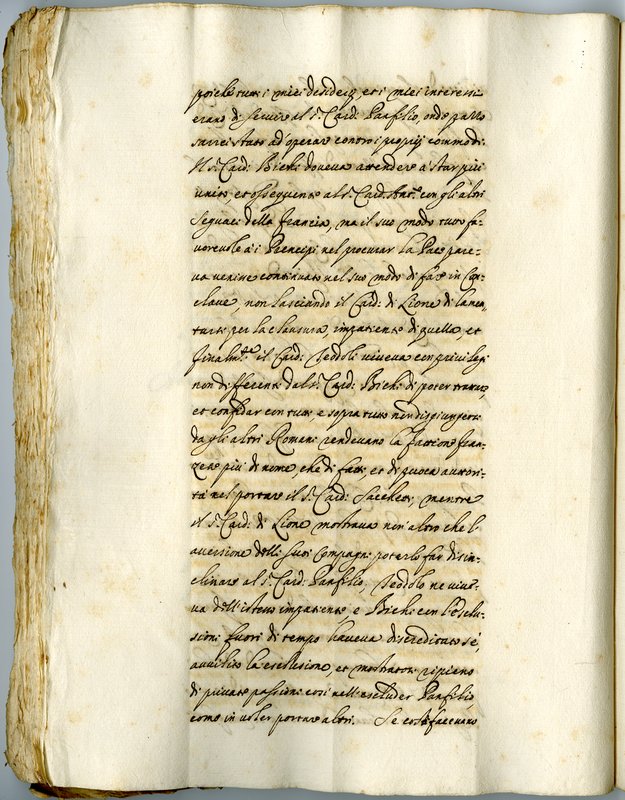 poiche tutti i miei desiderij, et i miei interessi
erano di servire al S.r Card: Panfilio, onde parto
sarrei stato ad'operar contro i proprij commodi.
Il S.r Card: Bichi doveva attendere a' star più
unito, et ossequente al S.r Card. Ant.o con gli altri
seguaci della francia, ma il suo modo tutto fa-
vorevole à i Prencipi nel procurar la Pace pare-
va venire continuato nel suo modo di fare in Con-
clave, non lasciando il Card: di Lione di lamen-
tarsi per la clausura impatiente di quella, et
finalm.te il Card: Teodoli viveva con privilegi
non differenti dal S.r Card: Bichi di poter trattar,
et confidar con tutti, e sopra tutto non disgiungersi
da gli altri Romani rendevano la fattione fran-
zese più di nome, che di fatti, et di puoca autori-
tà nel portare il S.r Card: Sacchetti, mentre
il S.r Card: di Lione mostrava non altro che l'
aversione delli suoi Compagni poterlo far disin-
clinare al S.r Card: Panfilio, Teodolo ne vive-
va dell'istesso impatiente, e Bichi con l'esclu-
sioni fuori di tempo haveva discreditato sè,
avvilito la esclusione, et mostratosi ripieno
di private passioni così nell'escluder Panfilio,
come in voler portare altri. Se così facevano